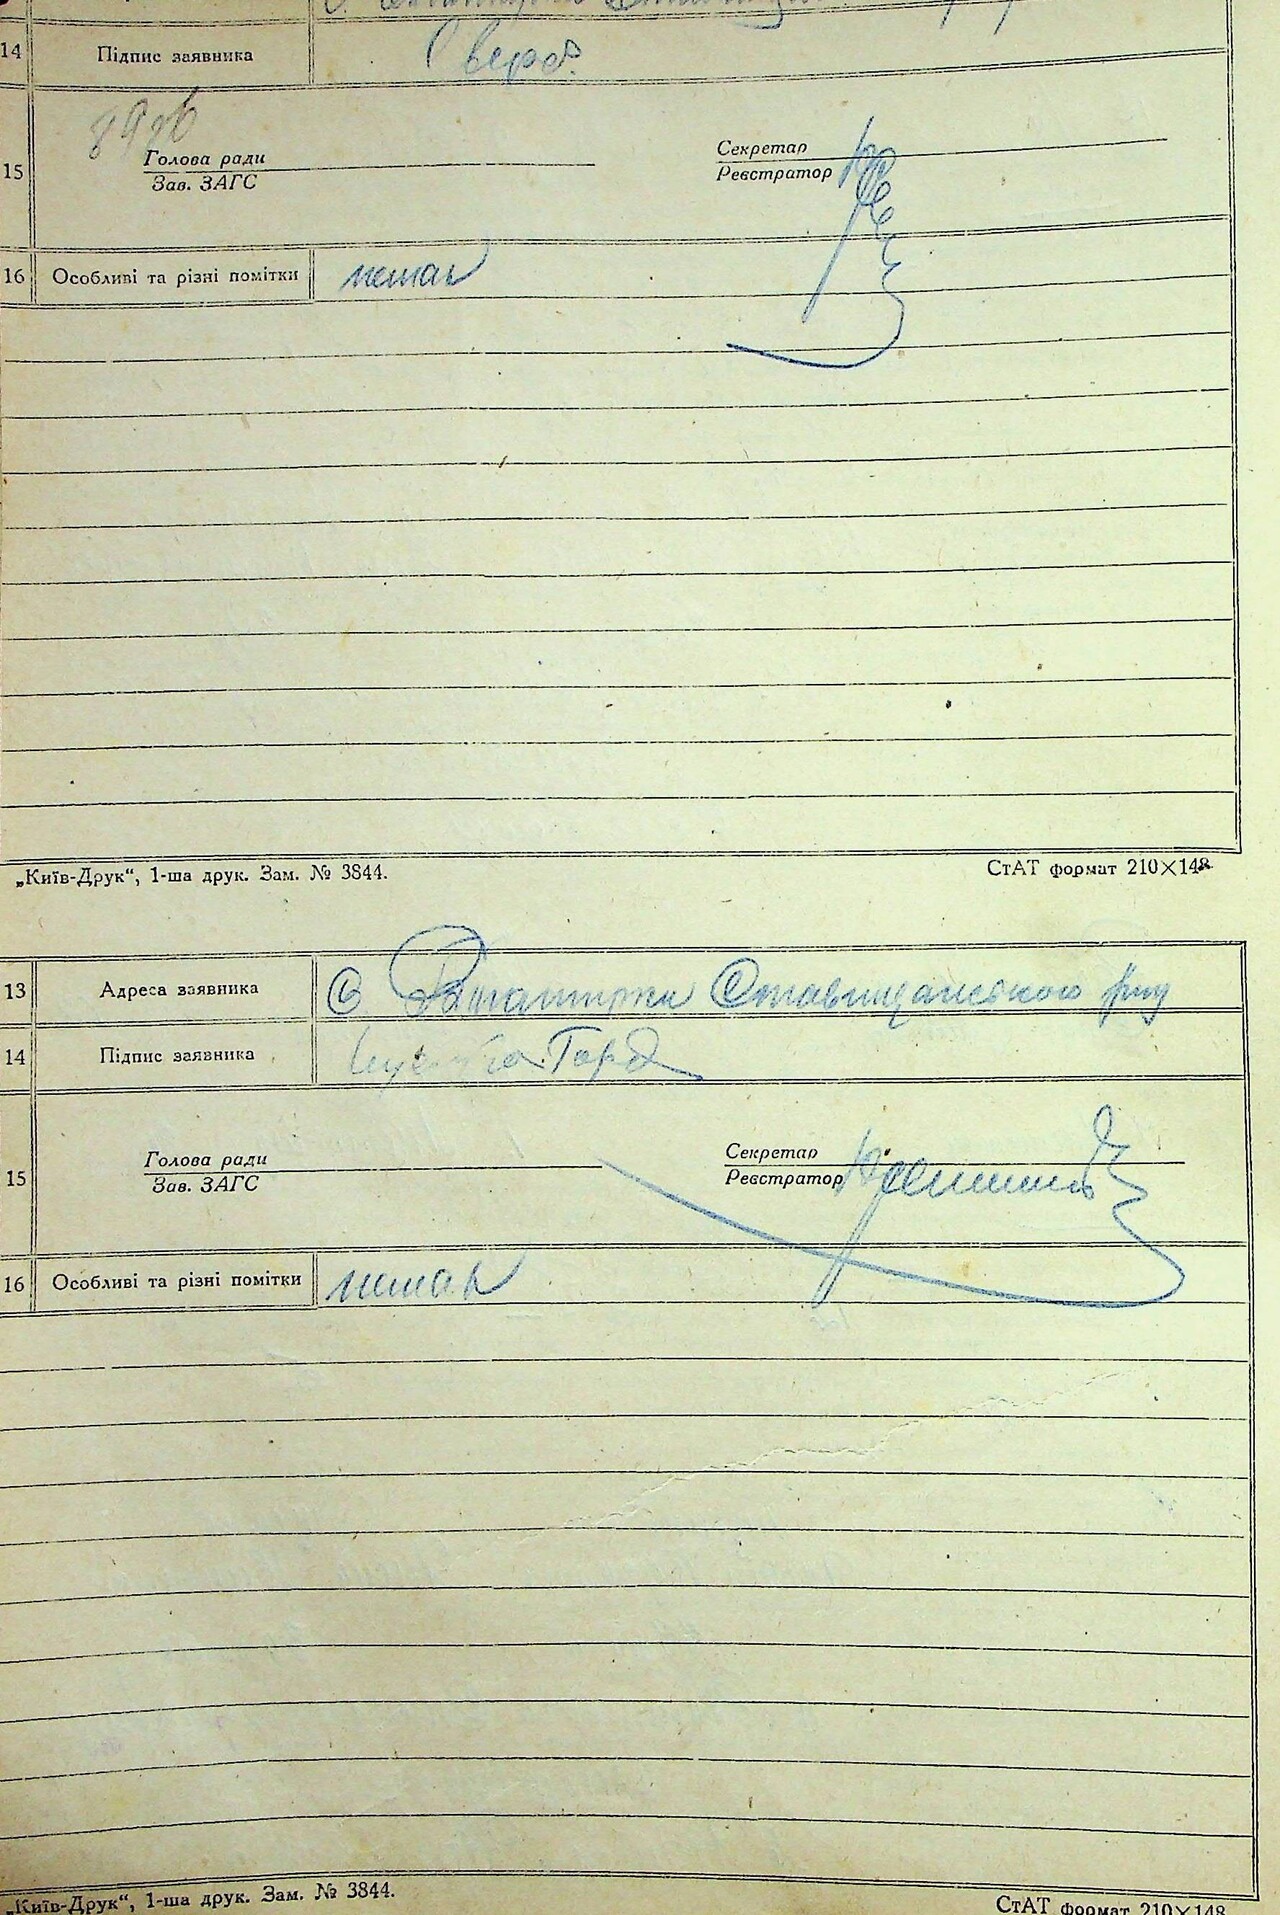 14 Підпис заявника
Голова ради
Секретар
15
Зав. ЗАГС
Реєстратор
16 Особливі та різні помітки немає
„Київ-Друк“, 1-ша друк. Зам. № 3844. СтАТ формат 210×148
13 Адреса заявника С. Ставищанського р-ну
14 Підпис заявника
Голова ради
Секретар
15
Зав. ЗАГС
Реєстратор
16 Особливі та різні помітки немає
„Київ-Друк“, 1-ша друк. Зам. № 3844. СтАТ формат 210×148